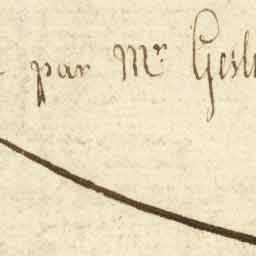 par Mr. Gesl